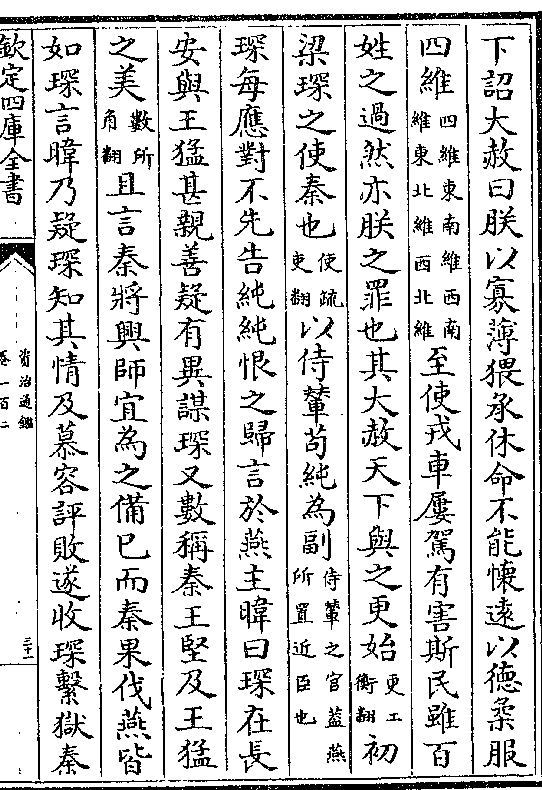 下詔大赦曰朕以寡薄猥承休命不能懷遠以德柔服
四維四維東南維西南維東北維西北維至使戎車屢駕有害斯民雖百
姓之過然亦朕之罪也其大赦天下與之更始更工衡翻初
梁琛之使秦也使疏吏翻以侍輦苟純為副侍輦之官蓋燕所置近臣也
琛每應對不先告純純恨之歸言於燕主暐曰琛在長
安與王猛甚親善疑有異謀琛又數稱秦王堅及王猛
之美數所角翻且言秦將興師宜為之備已而秦果伐燕皆
如琛言暐乃疑琛知其情及慕容評敗遂收琛繫獄秦
欽定四庫全書
資治通鑑
卷一百二
三十一